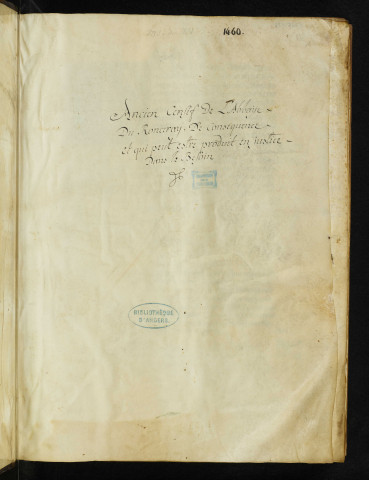 1460.
Ancien Censif De L'Abbaye
Du Ronceray De Consequence
et qui peut estre produit en justice
Dans le Besoin
BIBLIOTHÈQUE
D'ANGERS.